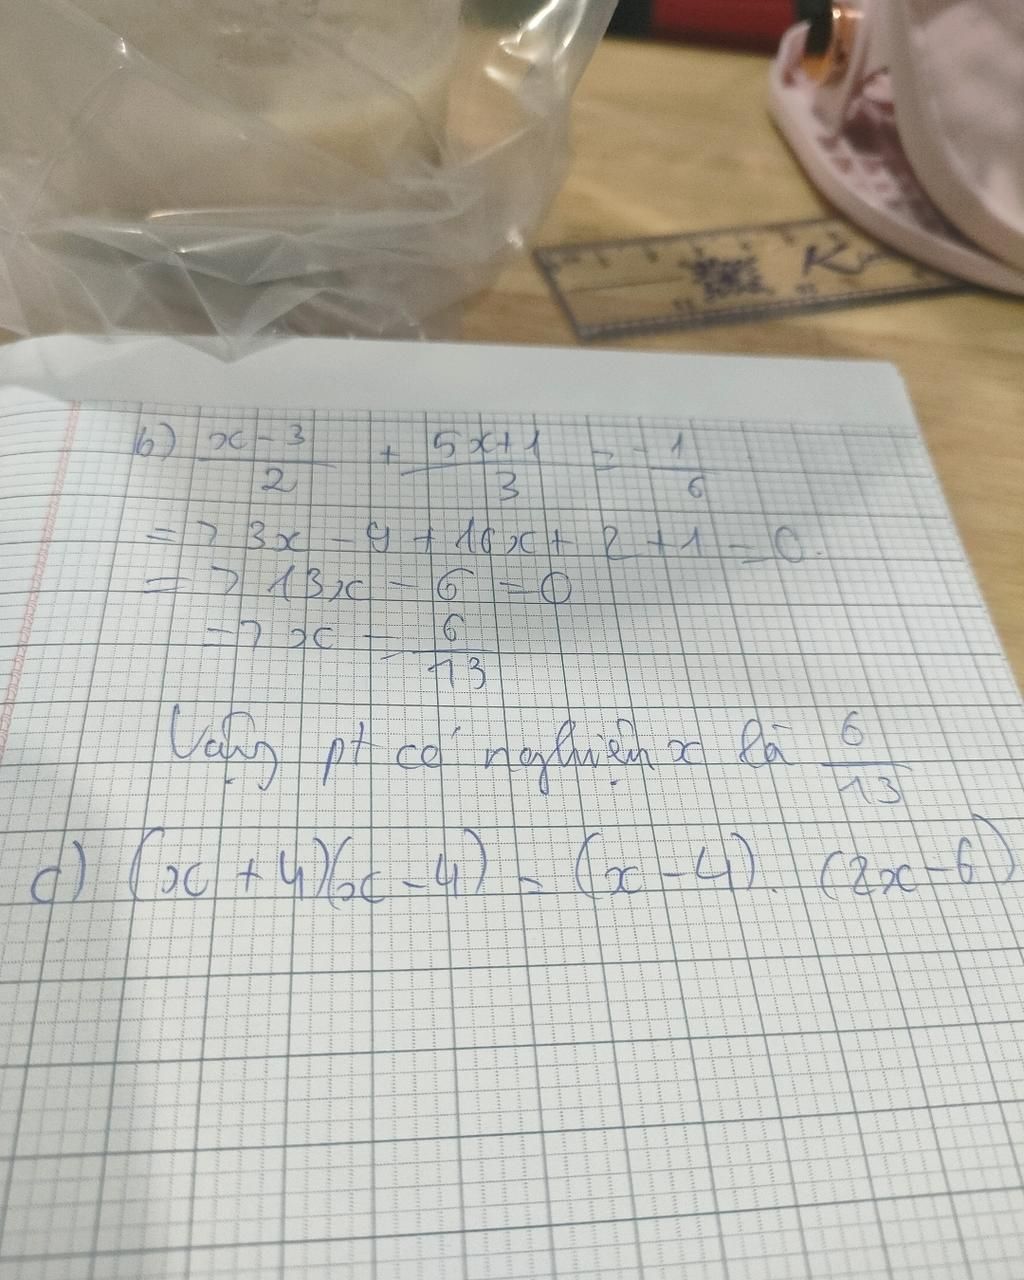 b) x-3/2 + 5x+1/3 = -1/6
=> 3x - 9 + 10x + 2 + 1 = 0.
=> 13x - 6 = 0
=> x = 6/13
Vậy pt có nghiệm x là 6/13
c) (x + 4)(x - 4) = (x - 4). (2x - 6)